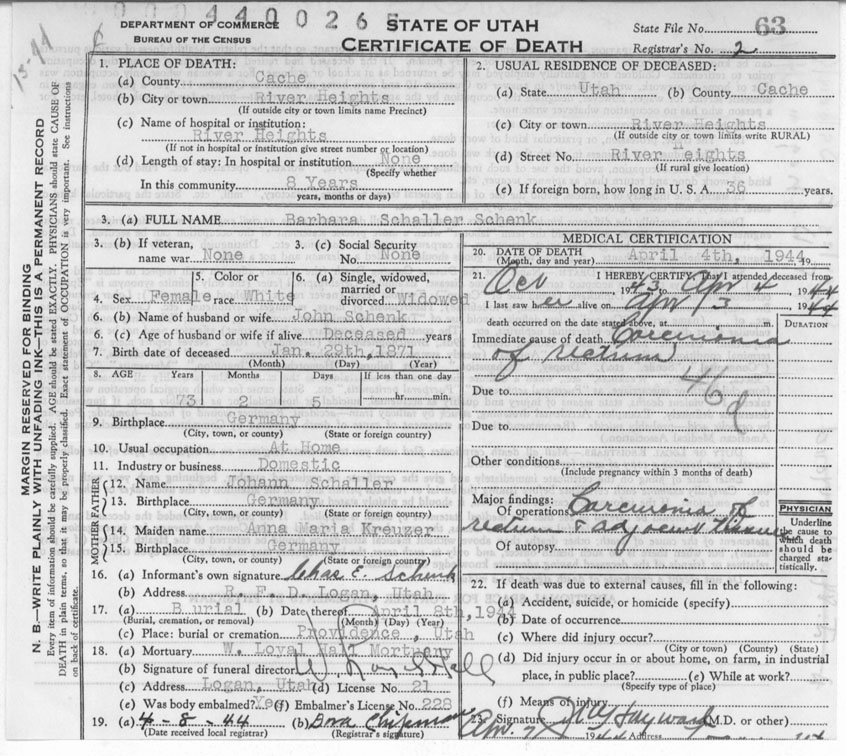 0004400265
DEPARTMENT OF COMMERCE
BUREAU OF THE CENSUS
STATE OF UTAH
CERTIFICATE OF DEATH
State File No. 63
Registrar's No. 2
15-44
MARGIN RESERVED FOR BINDING
N. B.—WRITE PLAINLY WITH UNFADING INK—THIS IS A PERMANENT RECORD
Every item of information should be carefully supplied. AGE should be stated EXACTLY. PHYSICIANS should state CAUSE OF
DEATH in plain terms, so that it may be properly classified. Exact statement of OCCUPATION is very important. See instructions
on back of certificate.
1. PLACE OF DEATH:
(a) County Cache
(b) City or town River Heights
(If outside city or town limits name Precinct)
(c) Name of hospital or institution:
River Heights
(If not in hospital or institution give street number or location)
(d) Length of stay: In hospital or institution None
(Specify whether
In this community 8 Years
years, months or days)
2. USUAL RESIDENCE OF DECEASED:
(a) State Utah (b) County Cache
(c) City or town River Heights
(If outside city or town limits write RURAL)
(d) Street No. River Heights
(If rural give location)
(e) If foreign born, how long in U. S. A. 36 years.
3. (a) FULL NAME Barbara Schaller Schenk
3. (b) If veteran,
name war None
3. (c) Social Security
No. None
4. Sex Female
5. Color or
race White
6. (a) Single, widowed,
married or
divorced Widowed
6. (b) Name of husband or wife John Schenk
6. (c) Age of husband or wife if alive Deceased years
7. Birth date of deceased Jan. 29th, 1871
(Month) (Day) (Year)
8. AGE Years Months Days If less than one day
73 2 5 hr. min.
9. Birthplace Germany
(City, town, or county) (State or foreign country)
10. Usual occupation At Home
11. Industry or business Domestic
FATHER
12. Name Johann Schaller
13. Birthplace Germany
(City, town, or county) (State or foreign country)
MOTHER
14. Maiden name Anna Maria Kreuzer
15. Birthplace Germany
(City, town, or county) (State or foreign country)
16. (a) Informant's own signature Chas E. Schenk
(b) Address R. F. D. Logan, Utah
17. (a) Burial (b) Date thereof April 8th, 1944
(Burial, cremation, or removal) (Month) (Day) (Year)
(c) Place: burial or cremation Providence, Utah
18. (a) Mortuary W. Loyal Hall Mortuary
(b) Signature of funeral director W. Loyal Hall
(c) Address Logan, Utah (d) License No. 21
(e) Was body embalmed? Yes (f) Embalmer's License No. 228
19. (a) 4-8-44 (b)
(Date received local registrar) (Registrar's signature)
MEDICAL CERTIFICATION
20. DATE OF DEATH April 4th, 1944 19
(Month, day and year)
21. I HEREBY CERTIFY, That I attended deceased from
Oct 1943 to Apr 4 1944
I last saw her alive on Apr 3 1944
death occurred on the date stated above, at m.
DURATION
Immediate cause of death Carcinonia
of rectum
46d
Due to
Due to
Other conditions
(Include pregnancy within 3 months of death)
Major findings:
Of operations Carcinonia of
rectum & adjacent tissue
Of autopsy
PHYSICIAN
Underline
the cause to
which death
should be
charged sta-
tistically.
22. If death was due to external causes, fill in the following:
(a) Accident, suicide, or homicide (specify)
(b) Date of occurrence
(c) Where did injury occur?
(City or town) (County) (State)
(d) Did injury occur in or about home, on farm, in industrial
place, in public place? (e) While at work?
(Specify type of place)
(f) Means of injury
23. Signature Hayward (M.D. or other)
Apr. 7 1944 Address